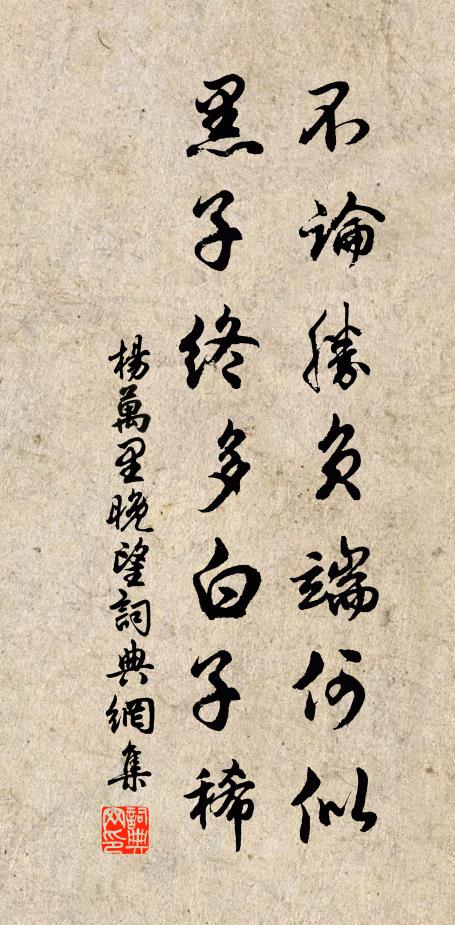 不論勝負端何似
黑子終多白子稀
楊萬里晚望詞典網集
詞典网印